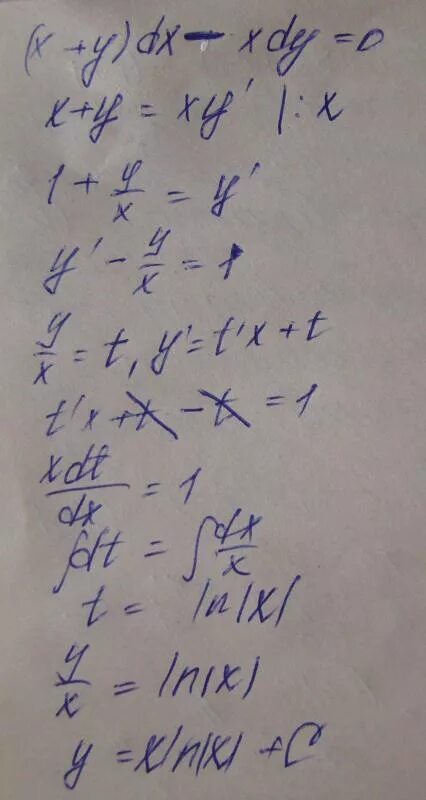 (x + y) dx - x dy = 0
x + y = xy' | : x
1 + y/x = y'
y' - y/x = 1
y/x = t, y' = t'x + t
t'x + t - t = 1
xdt/dx = 1
∫dt = ∫dx/x
t = ln|x|
y/x = ln|x|
y = x ln|x| + C